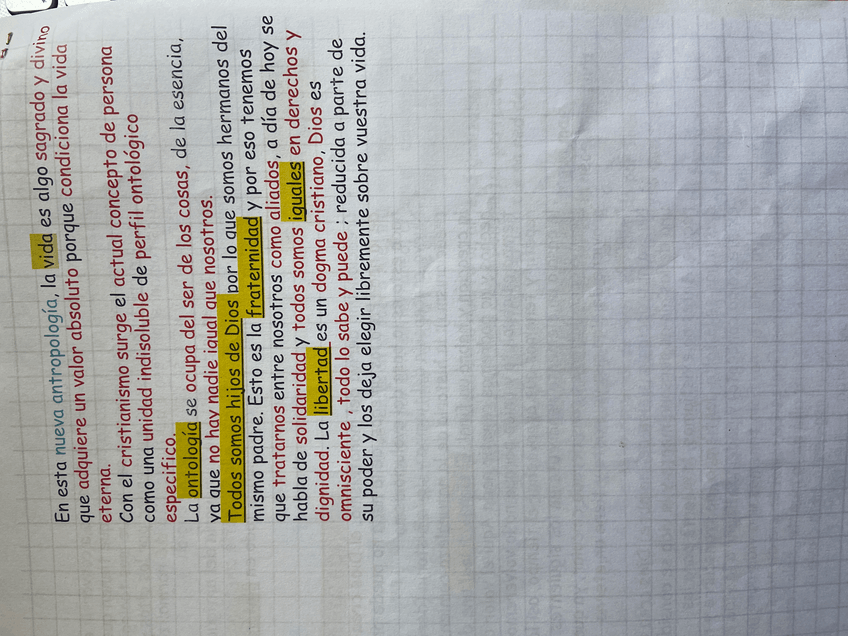 En esta nueva antropología, la vida es algo sagrado y divino
que adquiere un valor absoluto porque condiciona la vida
eterna.
Con el cristianismo surge el actual concepto de persona
como una unidad indisoluble de perfil ontológico
específico.
La ontología se ocupa del ser de los cosas, de la esencia,
ya que no hay nadie igual que nosotros.
Todos somos hijos de Dios por lo que somos hermanos del
mismo padre. Esto es la fraternidad y por eso tenemos
que tratarnos entre nosotros como aliados, a día de hoy se
habla de solidaridad y todos somos iguales en derechos y
dignidad. La libertad es un dogma cristiano, Dios es
omnisciente , todo lo sabe y puede ; reducida a parte de
su poder y los deja elegir libremente sobre vuestra vida.